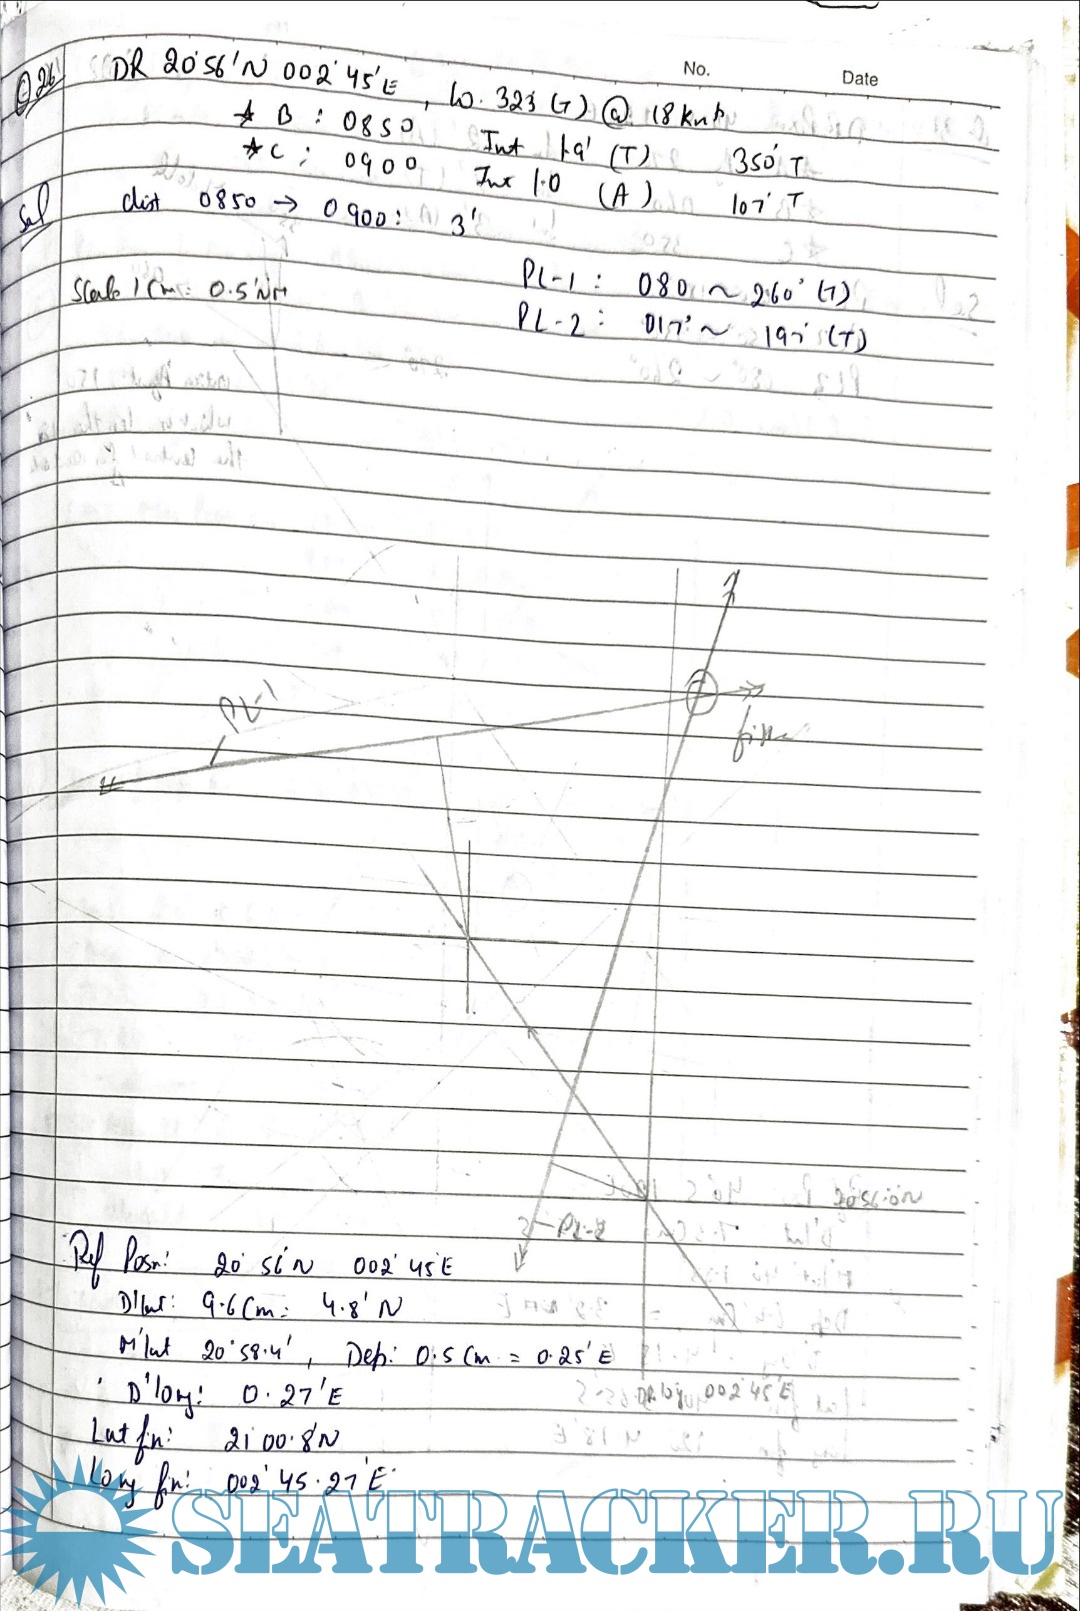 No. Date
Q26 DR 20°56'N 002°45'E , Co. 323 (T) @ 18 Knts
★ B : 0850 Int 1.9' (T) 350° T
★ C : 0900 Int 1.0 (A) 107° T
Sol dist 0850 → 0900: 3'
Scale 1 Cm = 0.5'NM PL-1 : 080 ~ 260° (T)
PL-2 : 017° ~ 197° (T)
PL-1
fix
20°56'N
PL-2
Ref Posn: 20°56'N 002°45'E
D'lat: 9.6 Cm = 4.8' N
M'lat 20°58.4' , Dep: 0.5 Cm = 0.25' E
∴ D'long: 0.27'E
DR long 002°45'E
Lat fix: 21°00.8'N
Long fix: 002°45.27'E
SEATRACKER.RU